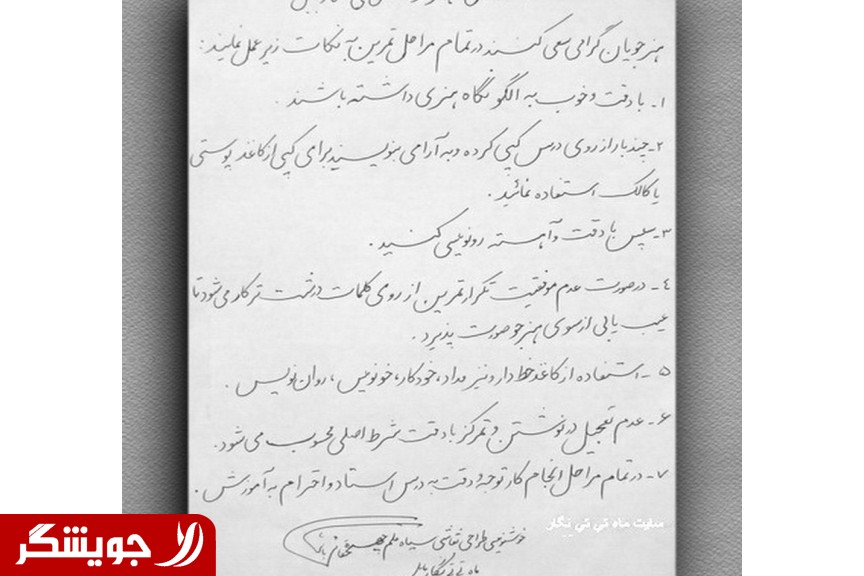 هنرجویان گرامی سعی کنند در تمام مراحل تمرین به نکات زیر عمل نمایند:
۱- با دقت و خوب به الگو نگاه هنری داشته باشند.
۲- چند بار از روی درس کپی کرده و به آرامی بنویسند برای کپی از کاغذ پوستی
یا کالک استفاده نمائید.
۳- سپس با دقت و آهسته رونویسی کنید.
٤- در صورت عدم موفقیت تکرار تمرین از روی کلمات درشت تر کار می شود تا
عیب یابی از سوی هنرجو صورت پذیرد.
۵- استفاده از کاغذ خط دار و نیز مداد، خودکار، خودنویس، روان نویس.
۶- عدم تعجیل در نوشتن و تمرکز با دقت شرط اصلی محسوب می شود.
۷- در تمام مراحل انجام کار توجه و دقت به درس استاد و احترام به آموزش.
سایت ماه تی تی نگار
خوشنویسی طراحی نقاشی سیاه قلم
ماه تی تی نگار بابل
جویشگر